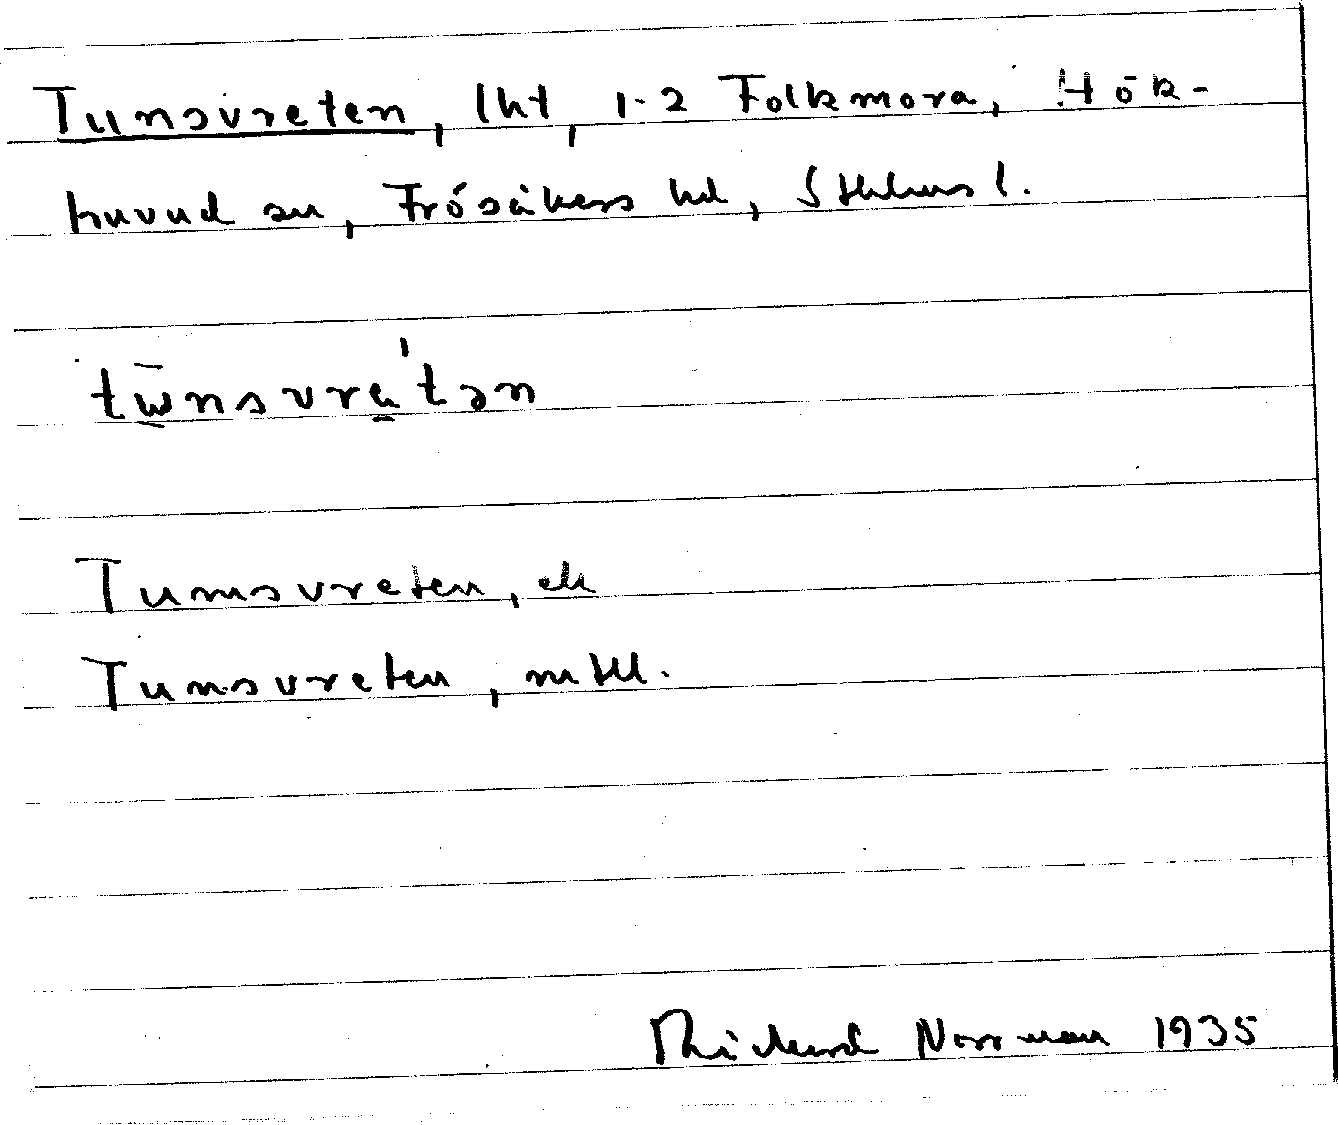 Tunsvreten, lht, 1-2 Folkmora, Hök-
huvud sn, Frösåkers hd, Sthlms l.
tūnsvre̱'tən
Tunsvreten, ek
Tunsvreten, mtll.
Rickard Norrman 1935